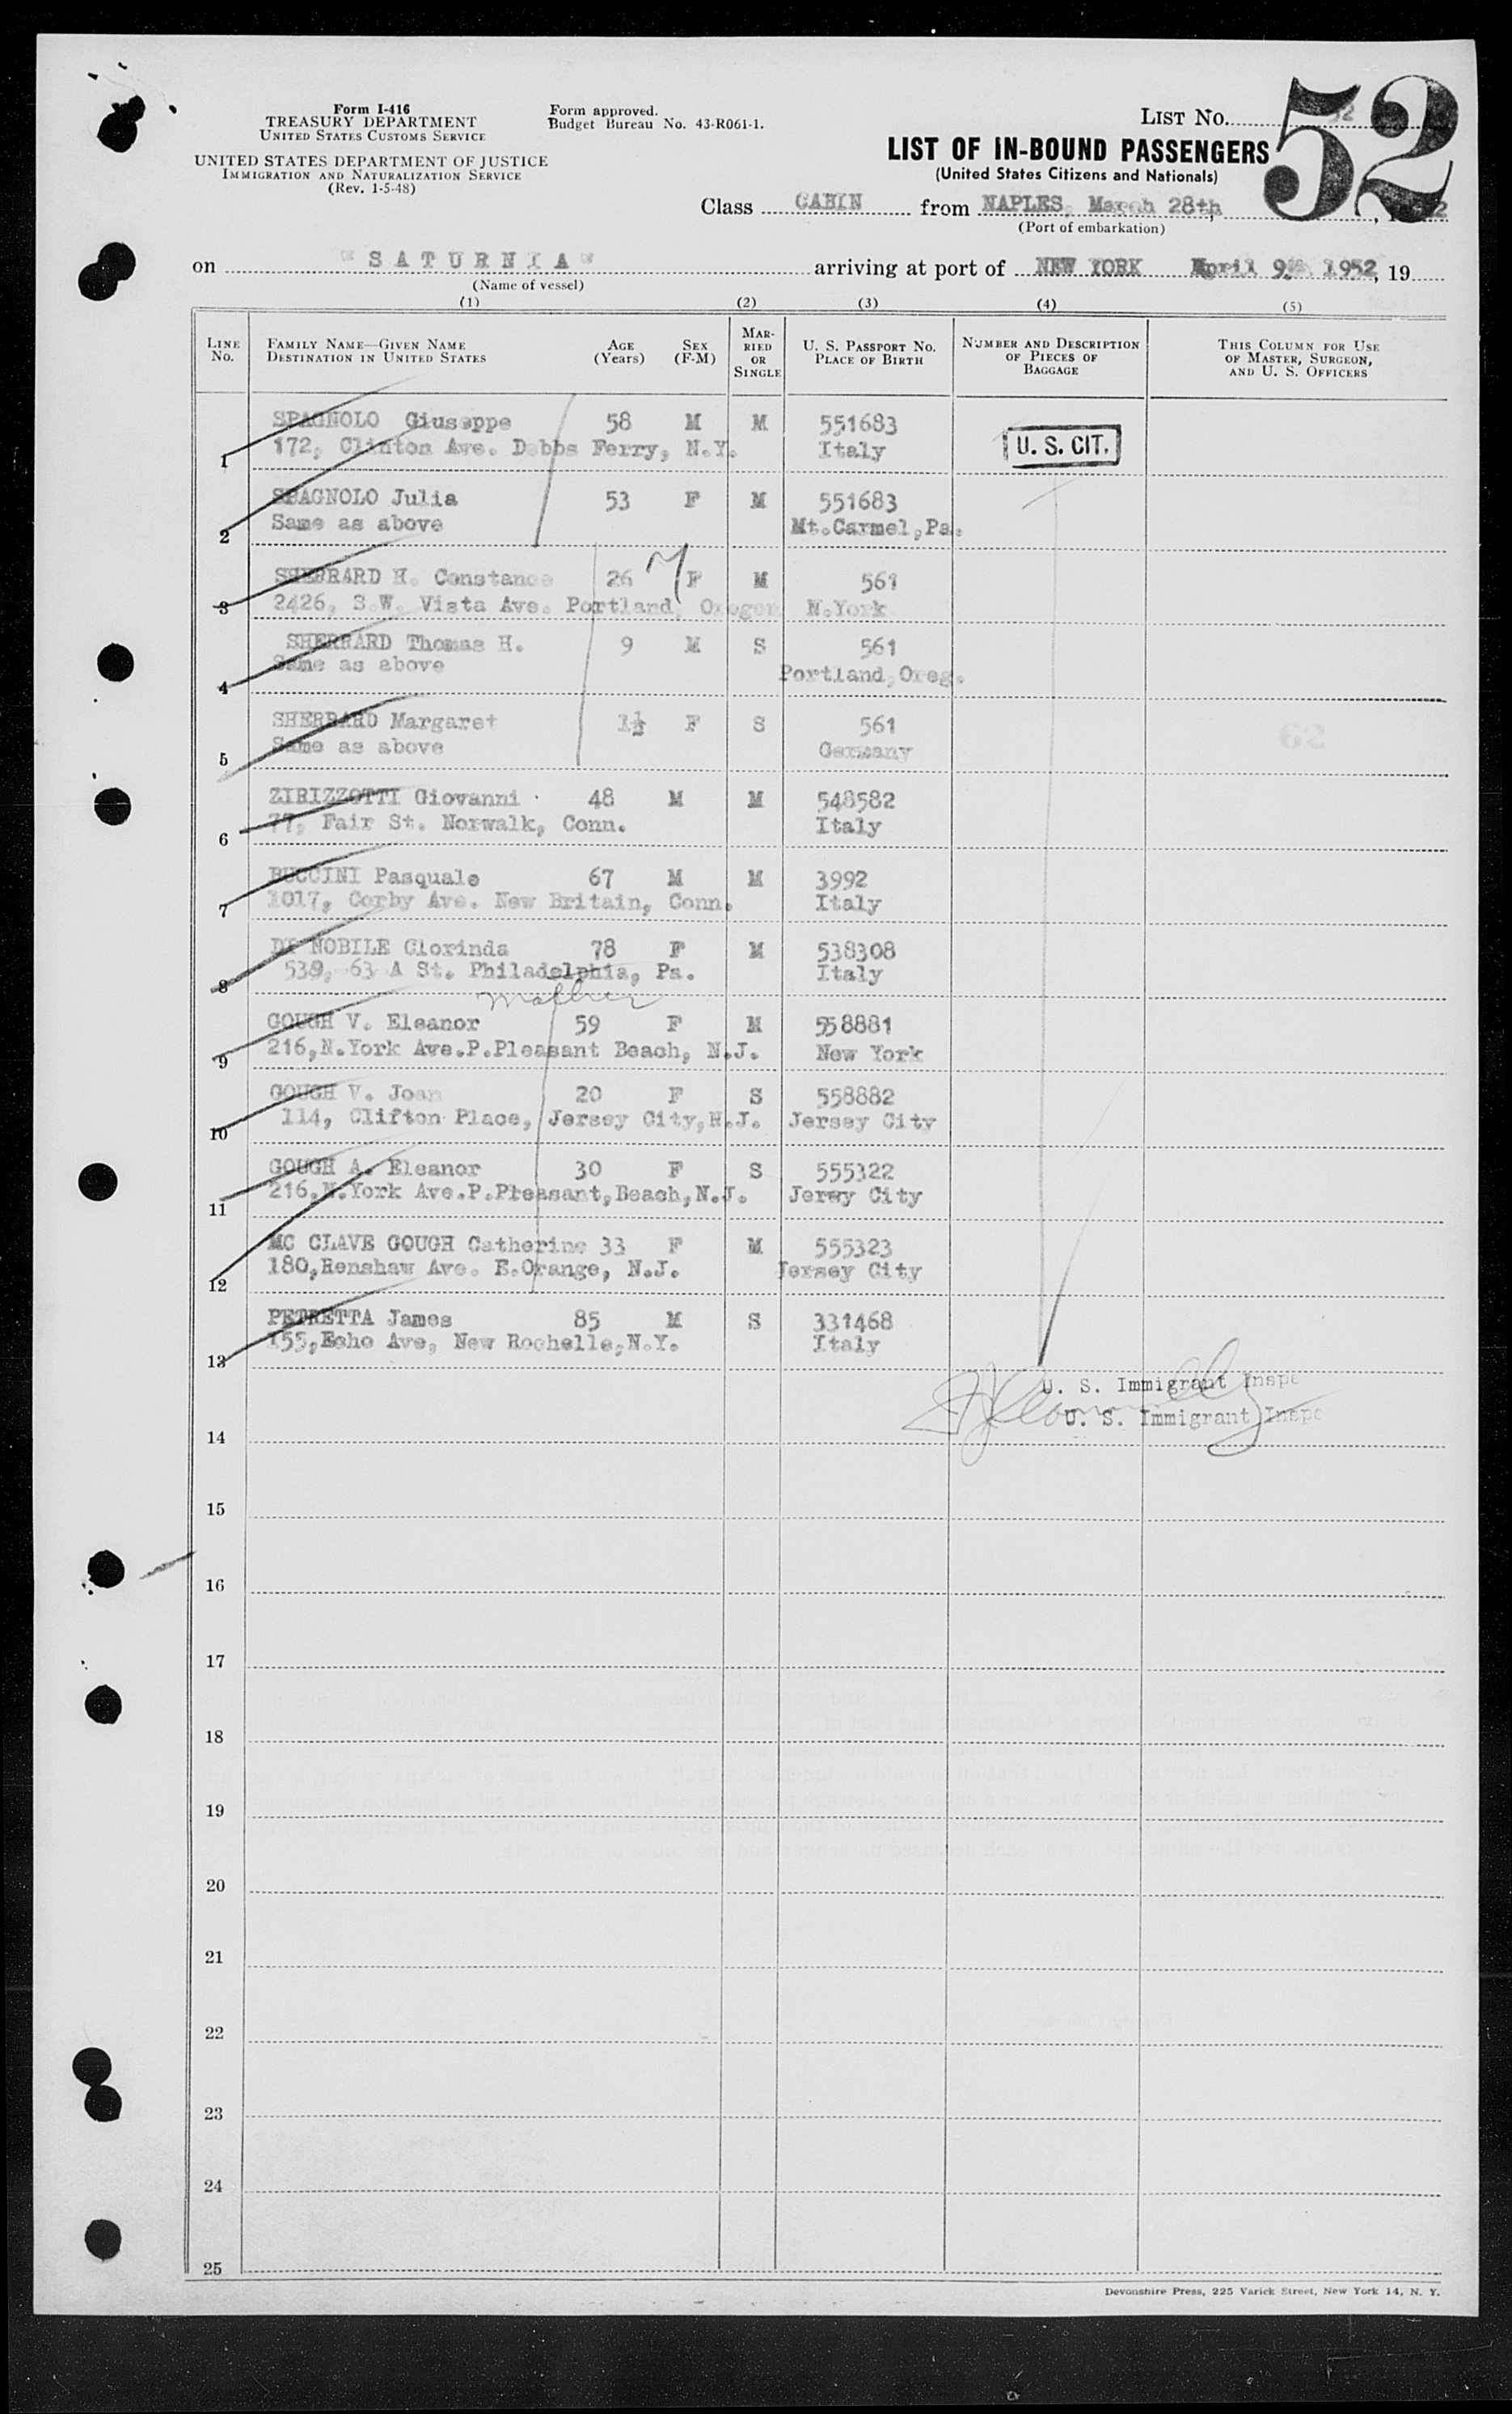 Form I-416
TREASURY DEPARTMENT
UNITED STATES CUSTOMS SERVICE
UNITED STATES DEPARTMENT OF JUSTICE
IMMIGRATION AND NATURALIZATION SERVICE
(Rev. 1-5-48)
Form approved.
Budget Bureau No. 43-R061-1.
LIST NO. 52
52
LIST OF IN-BOUND PASSENGERS
(United States Citizens and Nationals)
Class CABIN from NAPLES, March 28th,
(Port of embarkation)
on "SATURNIA" arriving at port of NEW YORK April 9th 1952, 19
(Name of vessel)
(1) (2) (3) (4) (5)
LINE No. FAMILY NAME—GIVEN NAME DESTINATION IN UNITED STATES AGE (Years) SEX (F-M) MARRIED OR SINGLE U. S. PASSPORT NO. PLACE OF BIRTH NUMBER AND DESCRIPTION OF PIECES OF BAGGAGE THIS COLUMN FOR USE OF MASTER, SURGEON, AND U. S. OFFICERS
SPAGNOLO Giuseppe 58 M M 551683
1 172, Clinton Ave. Dobbs Ferry, N.Y. Italy U. S. CIT.
SPAGNOLO Julia 53 F M 551683
2 Same as above Mt.Carmel,Pa.
SHERRARD H. Constance 26 F M 561
3 2426, S.W. Vista Ave. Portland, Oregon N.York
SHERRARD Thomas H. 9 M S 561
4 Same as above Portland,Oreg.
SHERRARD Margaret 1½ F S 561
5 Same as above Germany
ZIRIZZOTTI Giovanni 48 M M 548582
6 77, Fair St. Norwalk, Conn. Italy
BUCCINI Pasquale 67 M M 3992
7 1017, Corby Ave. New Britain, Conn. Italy
DI NOBILE Clorinda 78 F M 538308
8 539, 63 A St. Philadelphia, Pa. Italy
mother
GOUGH V. Eleanor 59 F M 558881
9 216,N.York Ave.P.Pleasant Beach, N.J. New York
GOUGH V. Joan 20 F S 558882
10 114, Clifton Place, Jersey City,N.J. Jersey City
GOUGH A. Eleanor 30 F S 555322
11 216.N.York Ave.P.Pleasant,Beach,N.J. Jersey City
MC CLAVE GOUGH Catherine 33 F M 555323
12 180,Renshaw Ave. E.Orange, N.J. Jersey City
PETRETTA James 85 M S 331468
13 155,Echo Ave, New Rochelle,N.Y. Italy
U. S. Immigrant Inspe
U. S. Immigrant Inspe
14
15
16
17
18
19
20
21
22
23
24
25
Devonshire Press, 225 Varick Street, New York 14, N. Y.